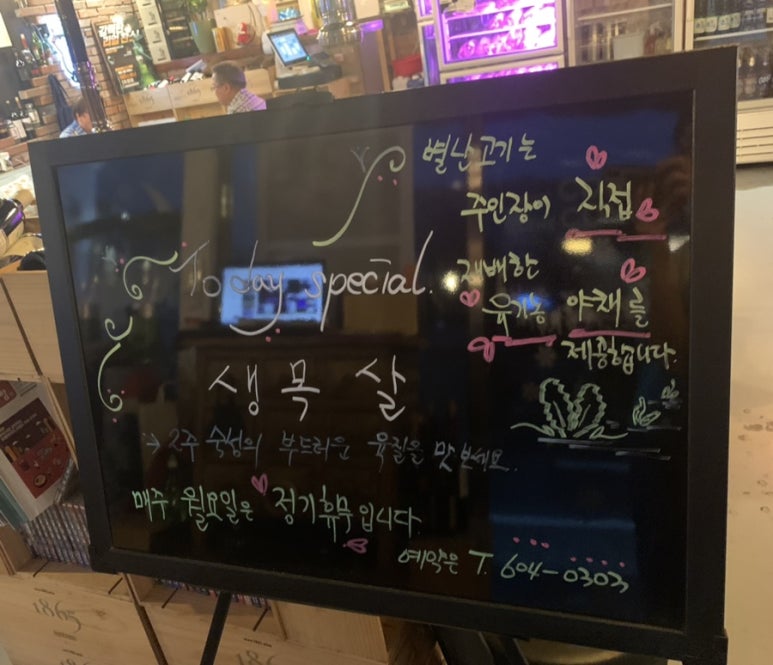 Today special.
생목살
→ 2주 숙성의 부드러운 육질을 맛보세요.
매주 월요일은 정기휴무입니다.
별난고기는
주인장이 직접
재배한
유기농 야채를
제공합니다.
예약은 T. 604-0303
1865
1865